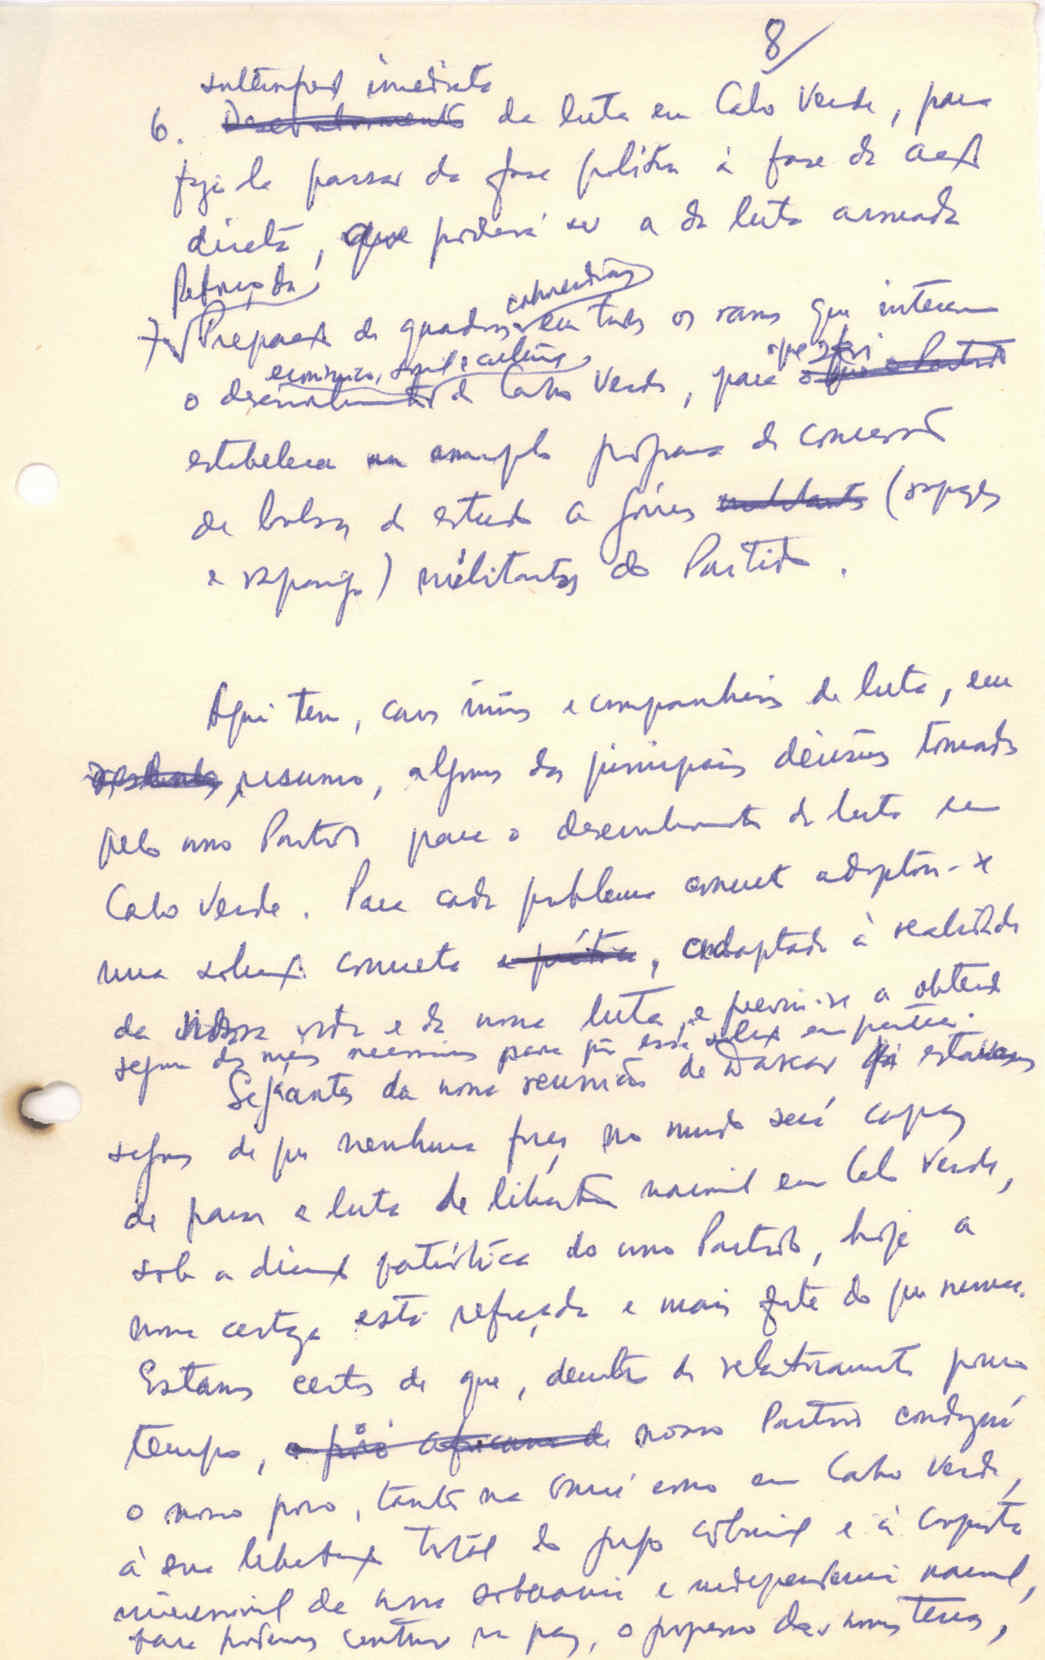 8/
intensificação imediata
6. Desenvolvimento da luta em Cabo Verde, para
fazê-la passar da fase política à fase da acção
directa, que poderá ser a da luta armada
Reforço da
7. Preparação de quadros caboverdianos em todos os ramos que interessam
económico, social e cultural
o desenvolvimento de Cabo Verde, para o que o Partido
estabelecerá um amplo programa de concessão
de bolsas de estudo a jóvens militantes (rapazes
e raparigas) militantes do Partido.
Aqui tem, caros irmãos e companheiros de luta, em
resumo, algumas das principais decisões tomadas
pelo nosso Partido para o desenvolvimento da luta em
Cabo Verde. Para cada problema concreto adoptou-se
uma solução concreta e prática, adaptada à realidade
da nossa vida e da nossa luta, e previu-se a obtenção
segura dos meios necessários para pôr essa solução em prática.
Se já antes da nossa reunião de Dakar estávamos
seguros de que nenhuma força no mundo será capaz
de parar a luta de libertação nacional em Cabo Verde,
sob a direcção patriótica do nosso Partido, hoje a
nossa certeza está reforçada e mais forte do que nunca.
Estamos certos de que, dentro de relativamente pouco
tempo, o povo africano da nosso Partido conduzirá
o nosso povo, tanto na Guiné como em Cabo Verde,
à sua libertação total do jugo colonial e à conquista
irreversível da nossa soberania e independência nacional,
para podermos construir na paz, o progresso das nossas terras,